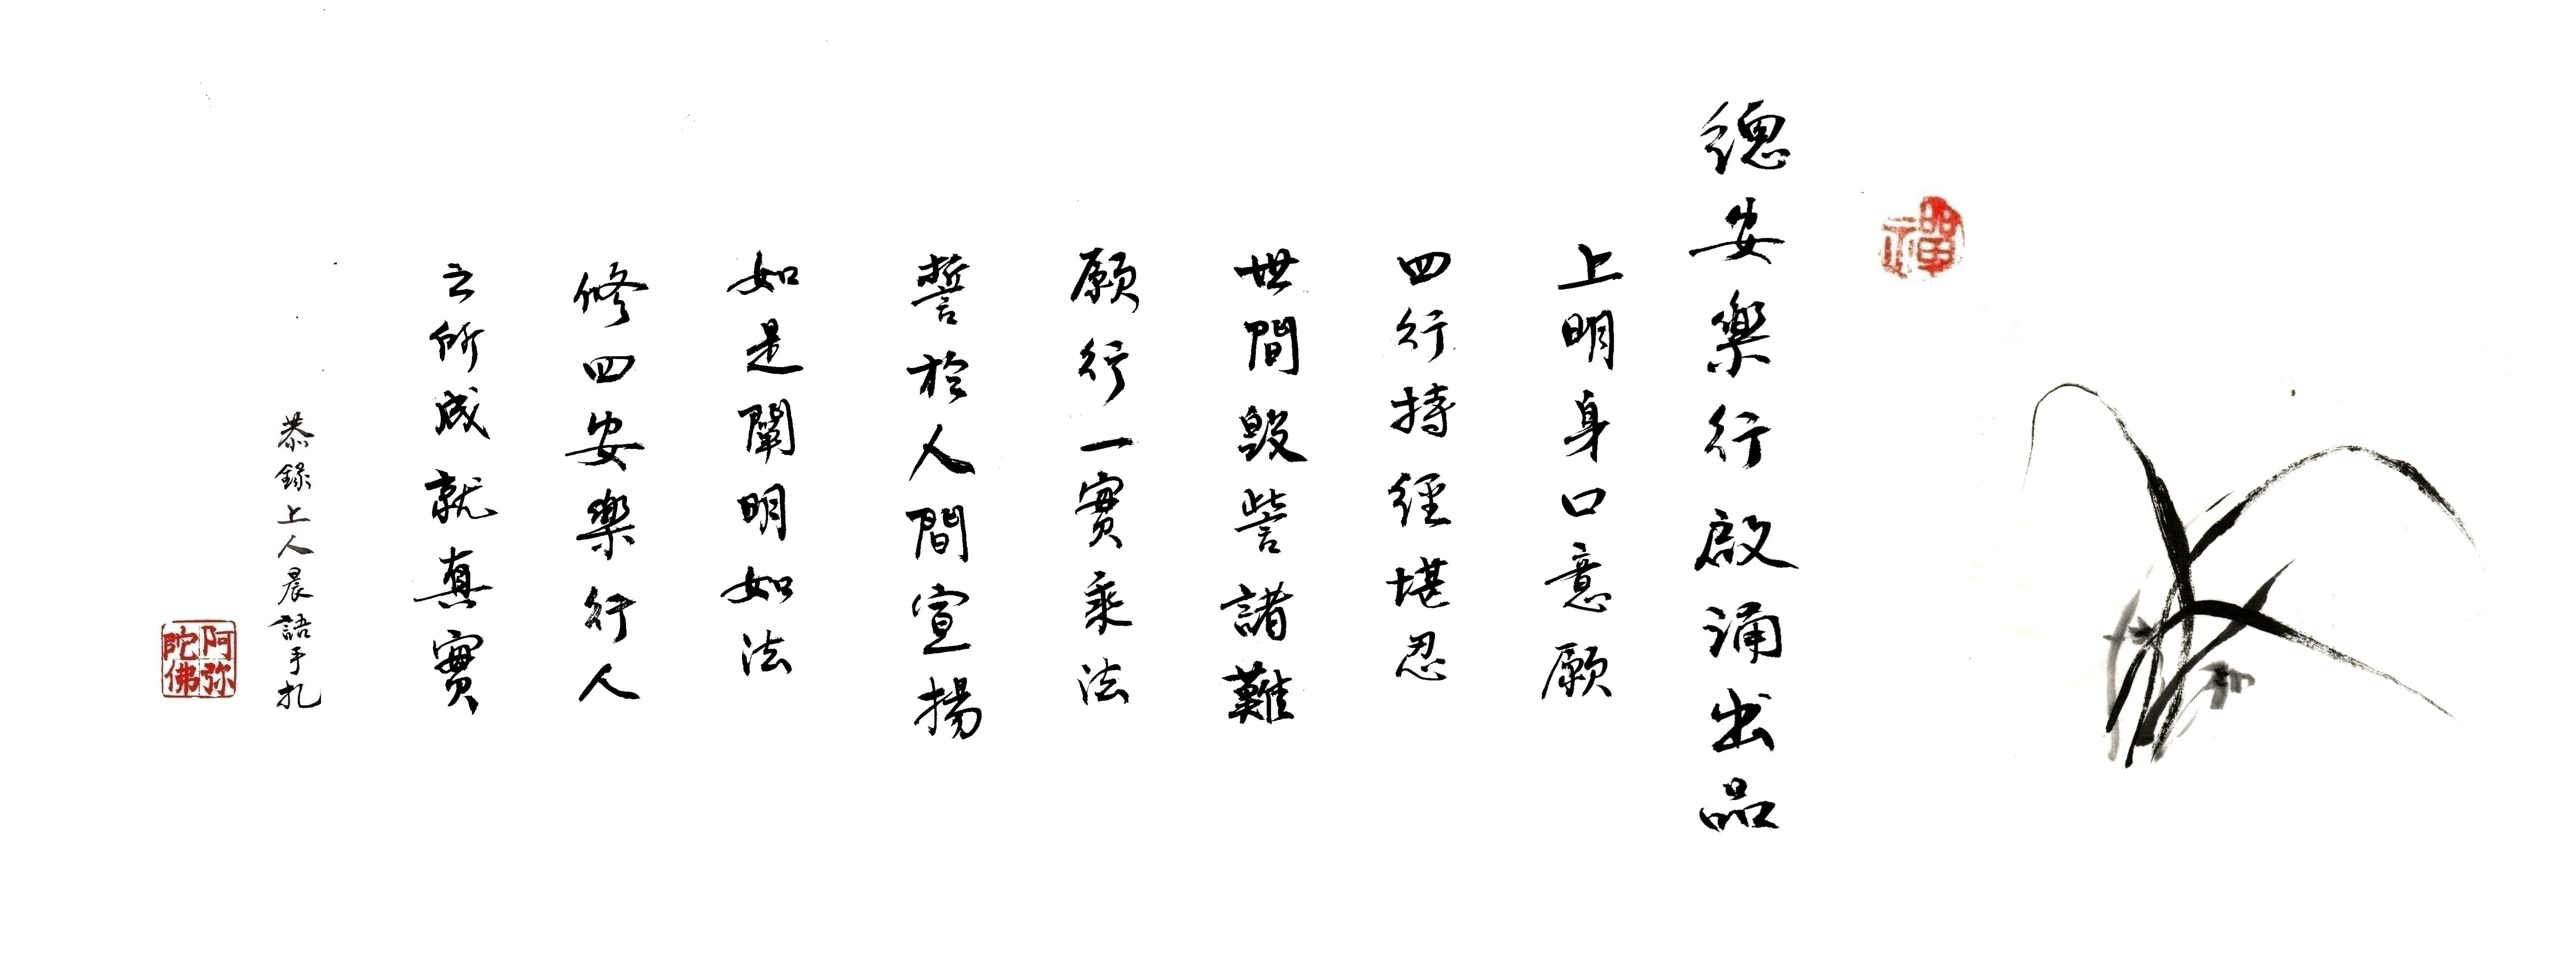 禪
總安樂行啟涌出品
上明身口意願
四行持經堪忍
世間毀訾諸難
願行一實乘法
誓於人間宣揚
如是闡明如法
修四安樂行人
之所成就真實
恭錄上人晨語手札
阿弥
陀佛